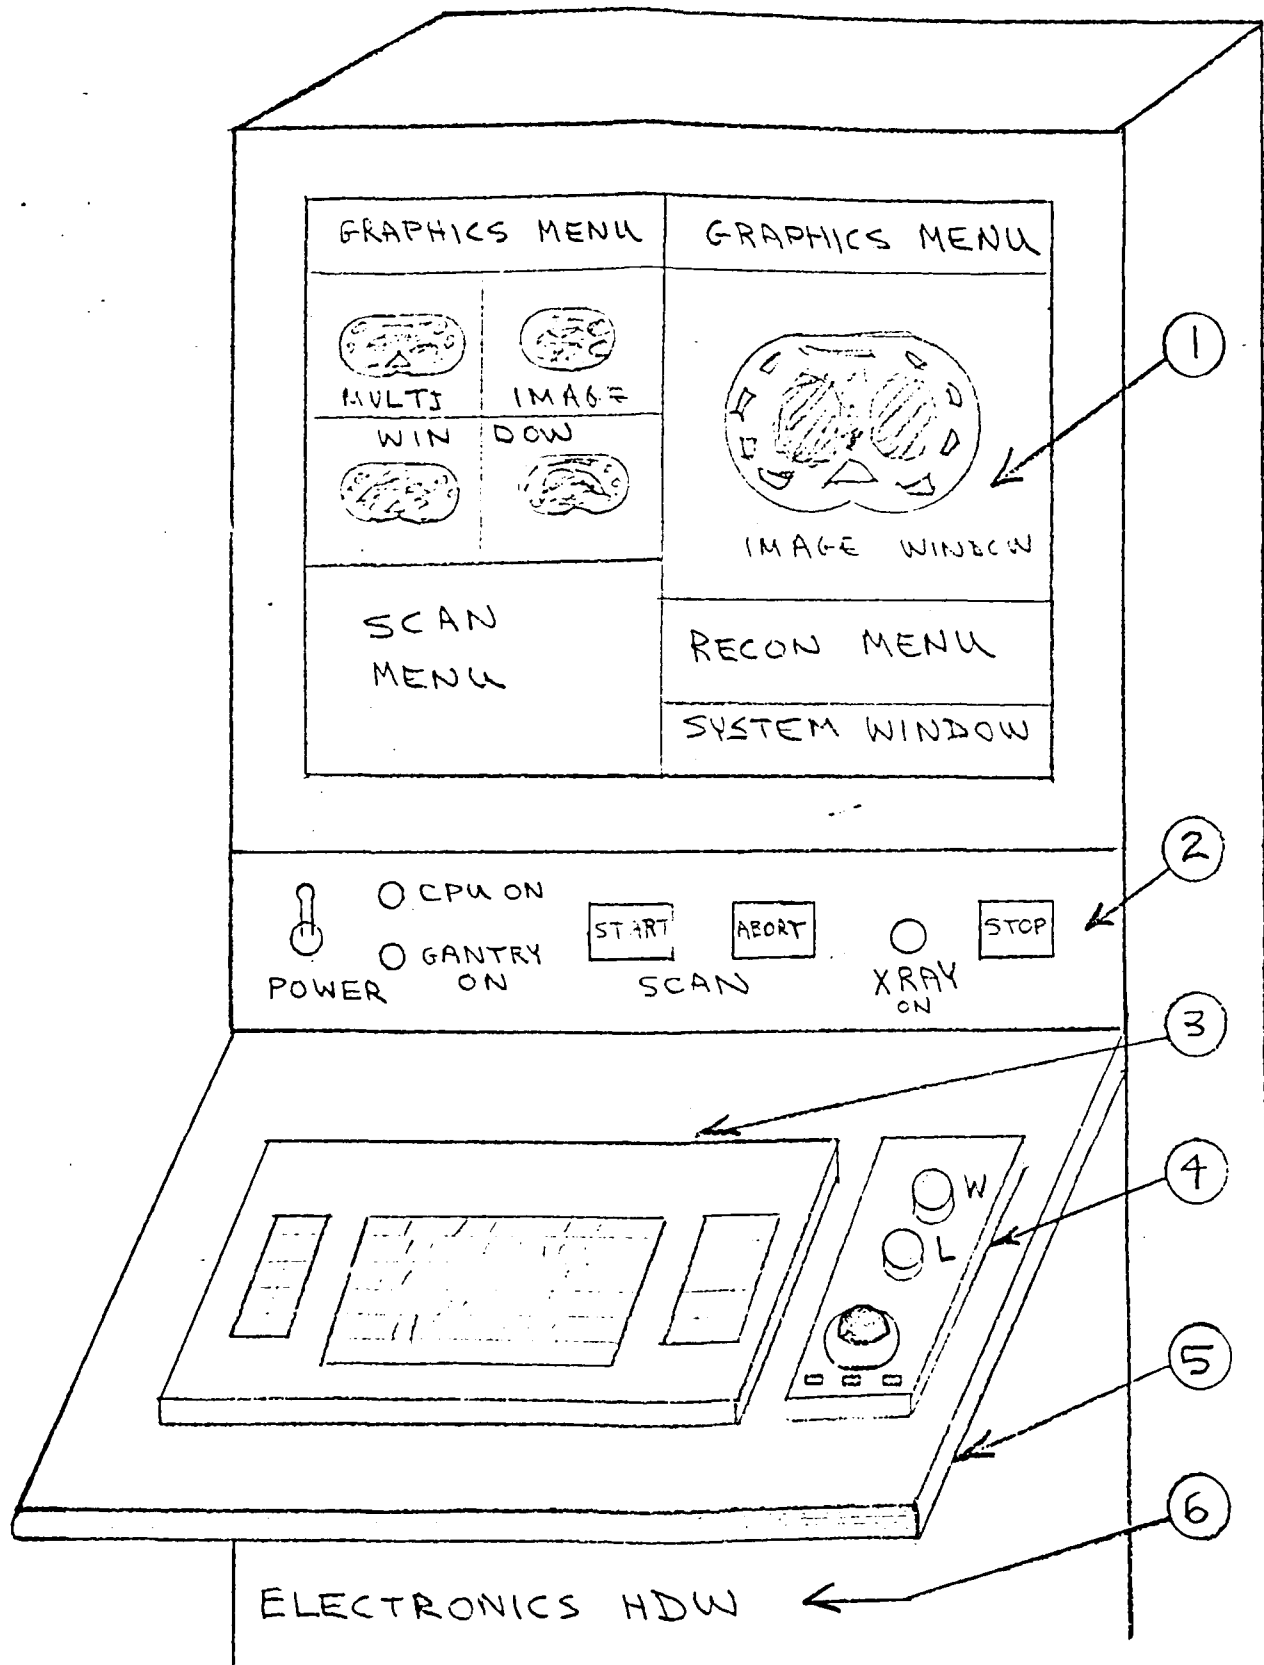 GRAPHICS MENU
MULTI IMAGE
WINDOW
SCAN
MENU
GRAPHICS MENU
IMAGE WINDOW
RECON MENU
SYSTEM WINDOW
1
POWER
CPU ON
GANTRY
ON
START
ABORT
SCAN
XRAY
ON
STOP
2
3
W
L
4
5
6
ELECTRONICS HDW